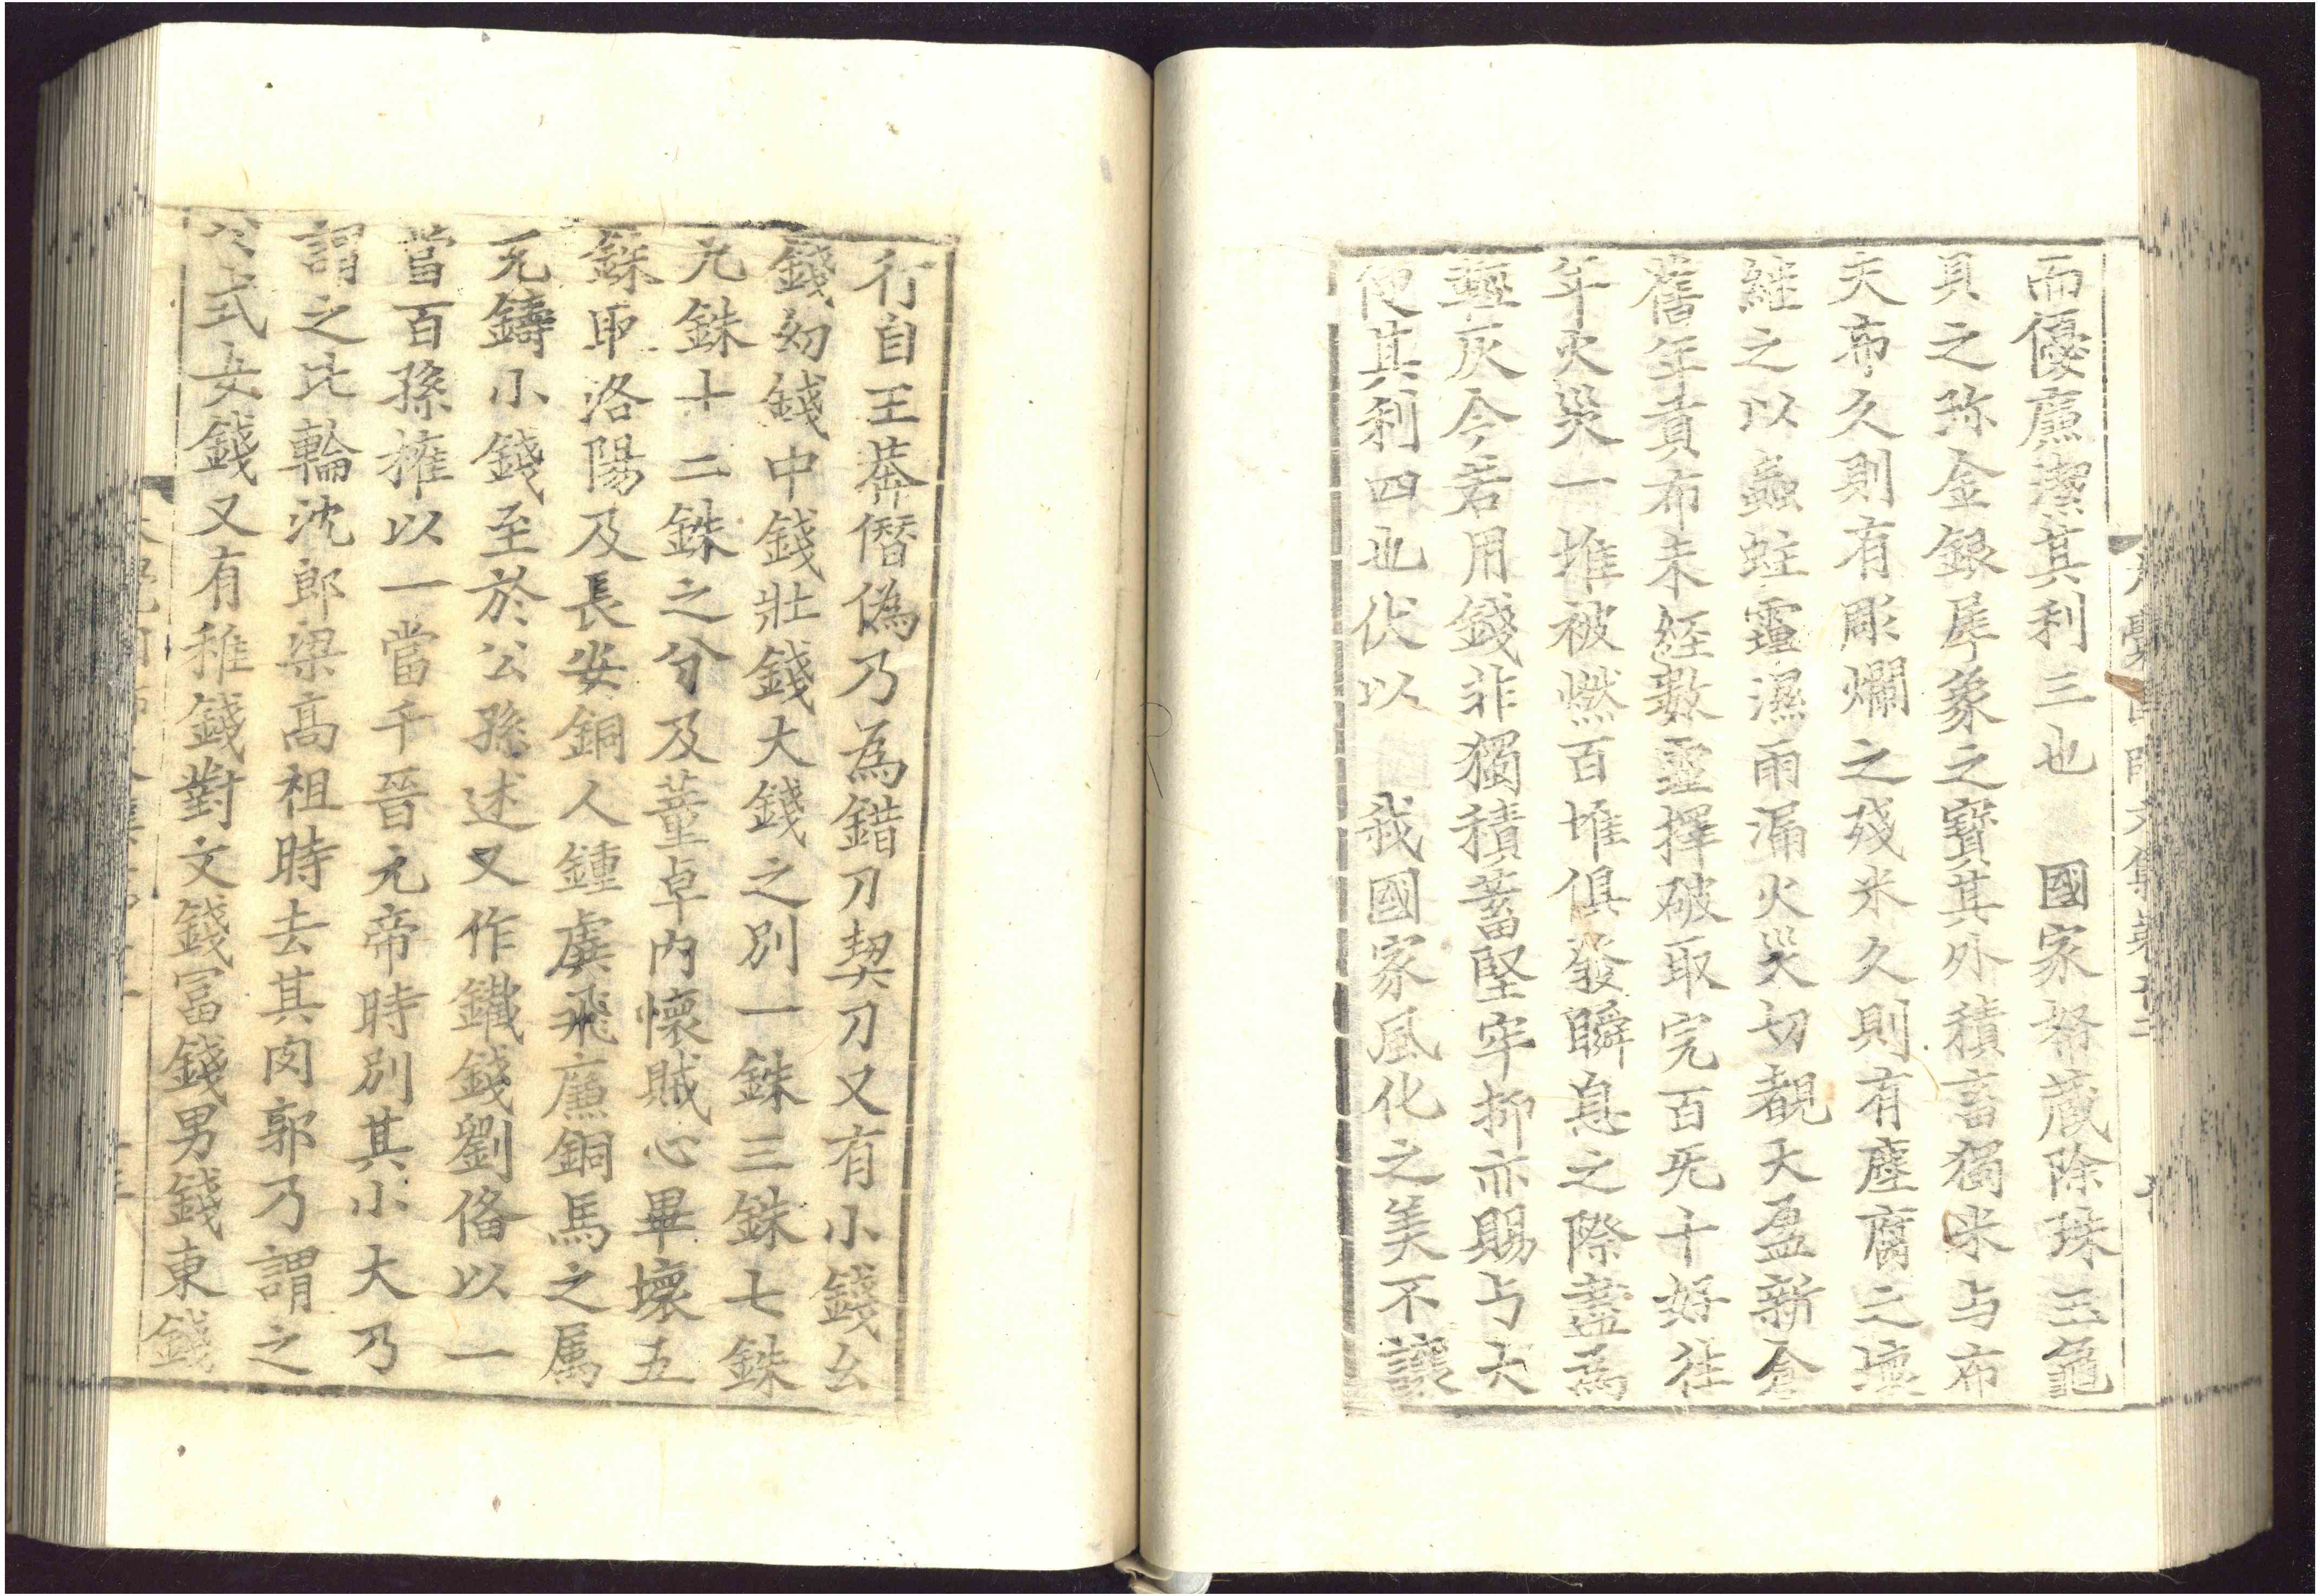 而優廉潔其利三也 國家帑藏除珠玉龜
貝之珎金銀犀象之寶其外積畜獨米与布
夫布久則有彫爛之殘米久則有塵腐之壞
維之以蟲蛀霊濕雨漏火災切覩大盈新倉
舊年貢布未經數霊擇破取完百旡十好往
年火災一堆被燃百堆俱發瞬息之際盡為
灰今若用錢非獨積蓄堅牢抑亦賜与大
便其利四也伏以 我國家風化之美不讓
行自王莾僭偽乃為錯刀契刀又有小錢幺
錢幼錢中錢壯錢大錢之別一銖三銖七銖
九銖十二銖之分及董卓內懷賊心畢壞五
銖取洛陽及長安銅人鍾虡飛廉銅馬之属
充鑄小錢至於公孫述又作鐵錢劉俻以一
當百孫㩁以一當千晉元帝時別其小大乃
謂之比輪沈郎梁高祖時去其肉郭乃謂之
公式女錢又有稚錢對文錢冨錢男錢東錢